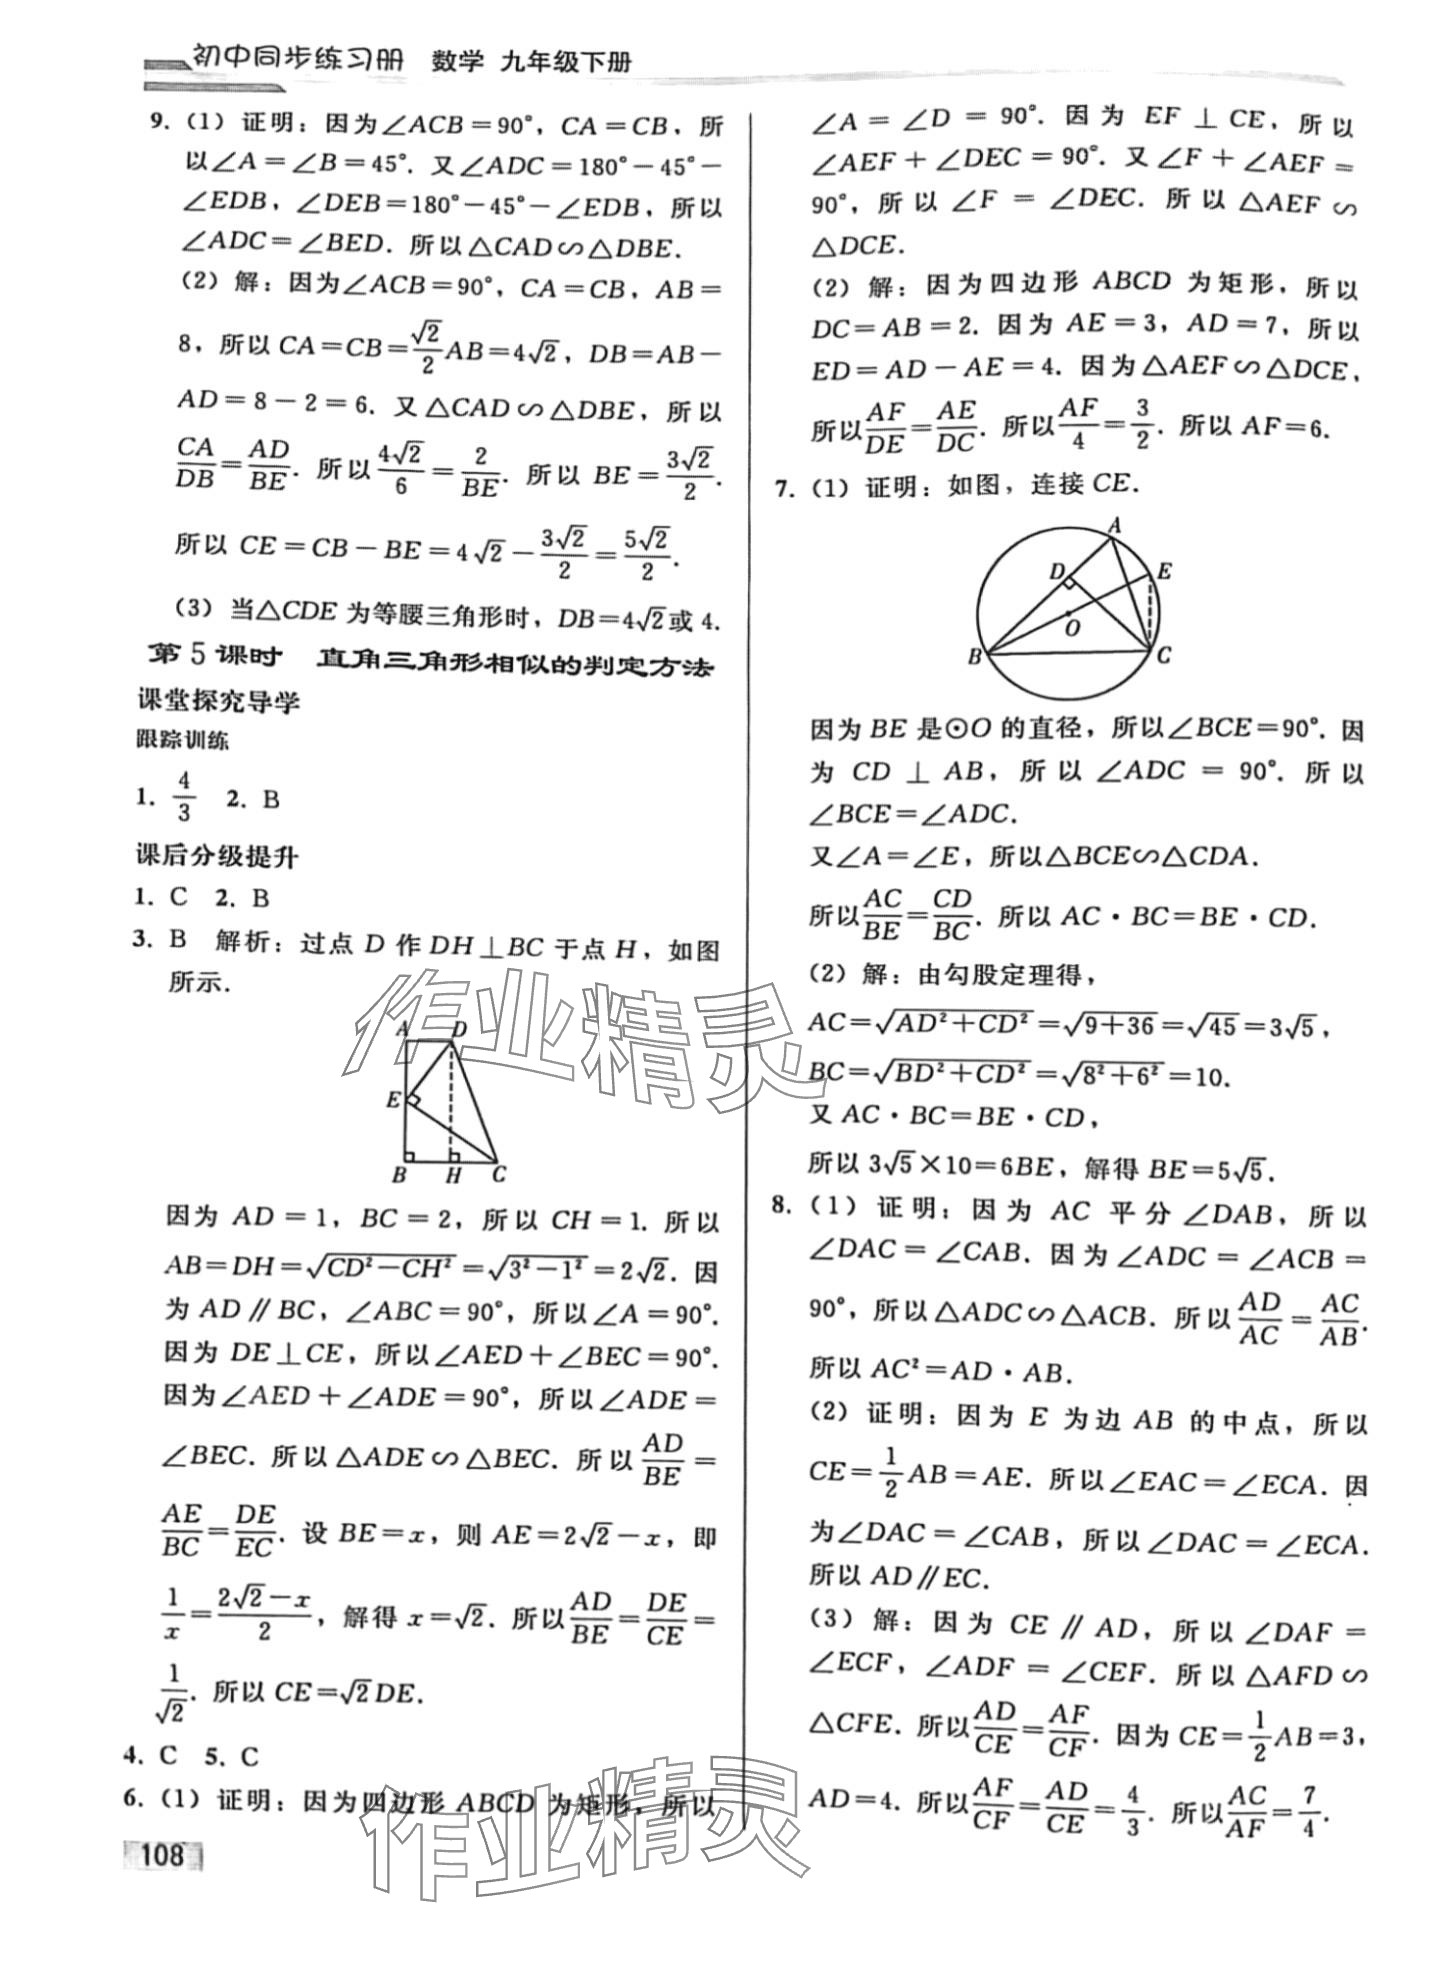 初中同步练习册 数学 九年级下册
9. (1) 证明：因为∠ACB=90°，CA=CB，所
以∠A=∠B=45°. 又∠ADC=180°-45°-
∠EDB，∠DEB=180°-45°-∠EDB，所以
∠ADC=∠BED. 所以△CAD∽△DBE.
(2) 解：因为∠ACB=90°，CA=CB，AB=
8，所以CA=CB=√2/2 AB=4√2，DB=AB-
AD=8-2=6. 又△CAD∽△DBE，所以
CA/DB=AD/BE. 所以4√2/6=2/BE. 所以 BE=3√2/2.
所以 CE=CB-BE=4√2-3√2/2=5√2/2.
(3) 当△CDE 为等腰三角形时，DB=4√2或 4.
第 5 课时 直角三角形相似的判定方法
课堂探究导学
跟踪训练
1. 4/3 2. B
课后分级提升
1. C 2. B
3. B 解析：过点 D 作 DH⊥BC 于点 H，如图
所示.
A D
E
B H C
因为 AD=1，BC=2，所以 CH=1. 所以
AB=DH=√(CD²-CH²)=√(3²-1²)=2√2. 因
为 AD∥BC，∠ABC=90°，所以∠A=90°.
因为 DE⊥CE，所以∠AED+∠BEC=90°.
因为∠AED+∠ADE=90°，所以∠ADE=
∠BEC. 所以△ADE∽△BEC. 所以AD/BE=
AE/BC=DE/EC. 设 BE=x，则 AE=2√2-x，即
1/x=(2√2-x)/2，解得 x=√2. 所以AD/BE=DE/CE=
1/√2. 所以 CE=√2DE.
4. C 5. C
6. (1) 证明：因为四边形 ABCD 为矩形，所以
108
∠A=∠D=90°. 因为 EF⊥CE，所以
∠AEF+∠DEC=90°. 又∠F+∠AEF=
90°，所以∠F=∠DEC. 所以△AEF∽
△DCE.
(2) 解：因为四边形 ABCD 为矩形，所以
DC=AB=2. 因为 AE=3，AD=7，所以
ED=AD-AE=4. 因为△AEF∽△DCE，
所以AF/DE=AE/DC. 所以AF/4=3/2. 所以 AF=6.
7. (1) 证明：如图，连接 CE.
A
D E
O
B C
因为 BE 是⊙O 的直径，所以∠BCE=90°. 因
为 CD⊥AB，所以∠ADC=90°. 所以
∠BCE=∠ADC.
又∠A=∠E，所以△BCE∽△CDA.
所以AC/BE=CD/BC. 所以 AC·BC=BE·CD.
(2) 解：由勾股定理得，
AC=√(AD²+CD²)=√(9+36)=√45=3√5，
BC=√(BD²+CD²)=√(8²+6²)=10.
又 AC·BC=BE·CD，
所以 3√5×10=6BE，解得 BE=5√5.
8. (1) 证明：因为 AC 平分∠DAB，所以
∠DAC=∠CAB. 因为∠ADC=∠ACB=
90°，所以△ADC∽△ACB. 所以AD/AC=AC/AB.
所以 AC²=AD·AB.
(2) 证明：因为 E 为边 AB 的中点，所以
CE=1/2 AB=AE. 所以∠EAC=∠ECA. 因
为∠DAC=∠CAB，所以∠DAC=∠ECA.
所以 AD∥EC.
(3) 解：因为 CE∥AD，所以∠DAF=
∠ECF，∠ADF=∠CEF. 所以△AFD∽
△CFE. 所以AD/CE=AF/CF. 因为 CE=1/2 AB=3，
AD=4. 所以AF/CF=AD/CE=4/3. 所以AC/AF=7/4.
作业精灵
作业精灵